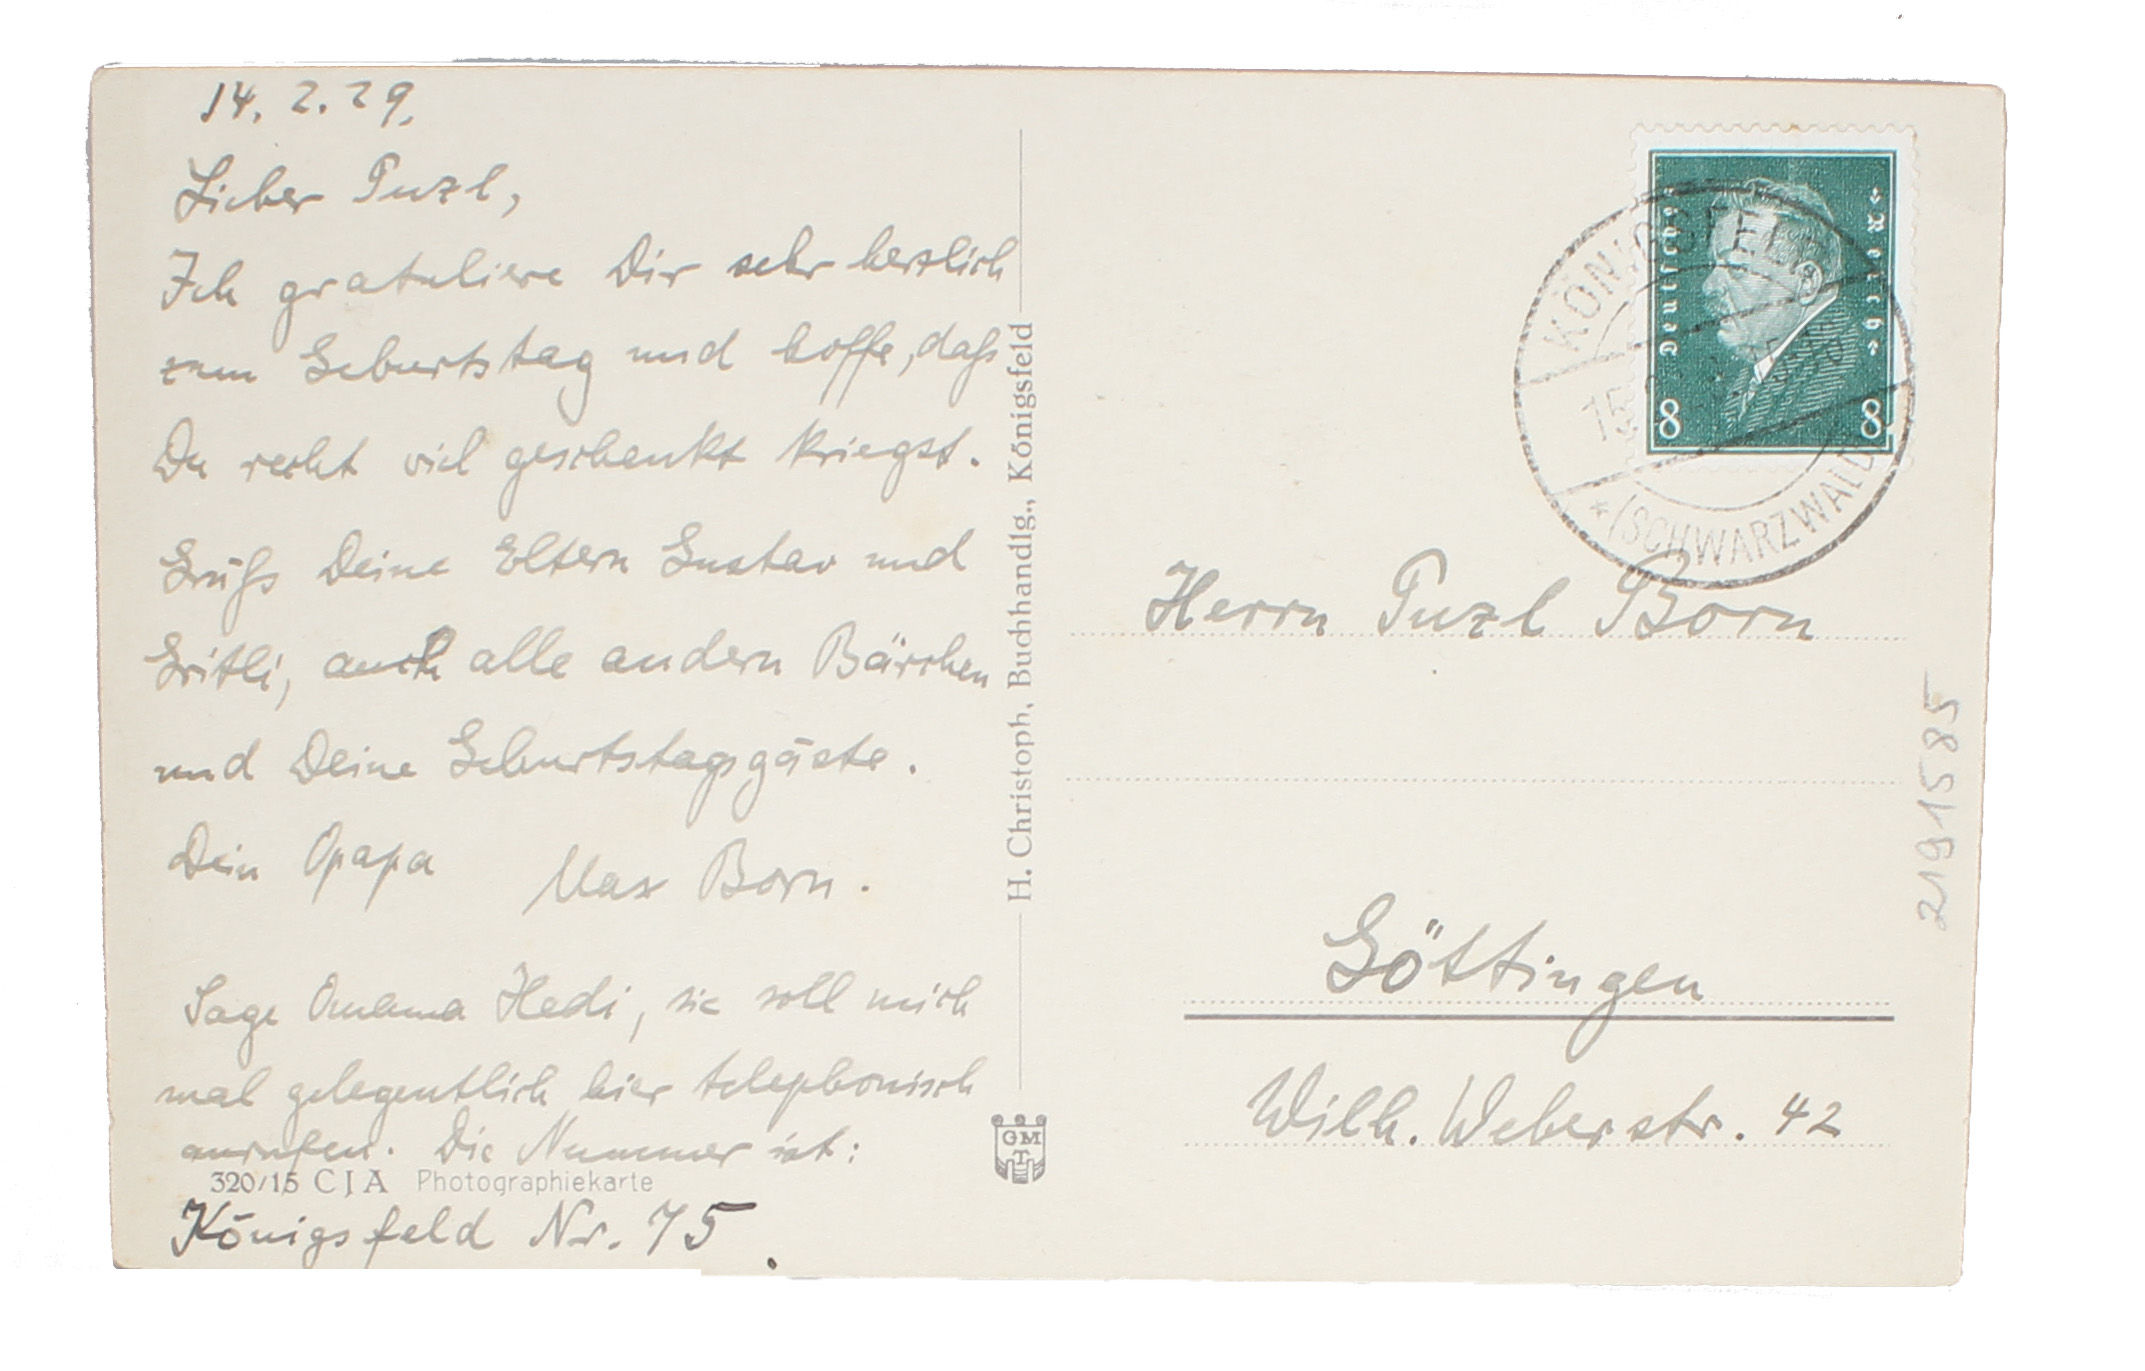 14. 2. 29.
Lieber Puzl,
Ich gratuliere Dir sehr herzlich
zum Geburtstag und hoffe, daß
Du recht viel geschenkt kriegst.
Grüß Deine Eltern Gustav und
Gritli, auch alle andern Bärchen
und Deine Geburtstagsgäste.
Dein Opapa Max Born.
Sage Omama Hedi, sie soll mich
mal gelegentlich hier telephonisch
anrufen. Die Nummer ist:
320/15 CJA Photographiekarte
Königsfeld Nr. 75.
H. Christoph, Buchhandlg., Königsfeld
GM
T
Deutsches Reich
8 8
KÖNIGSFELD
15.
* (SCHWARZWALD)
Herrn Puzl Born
Göttingen
Wilh. Weberstr. 42
2191585